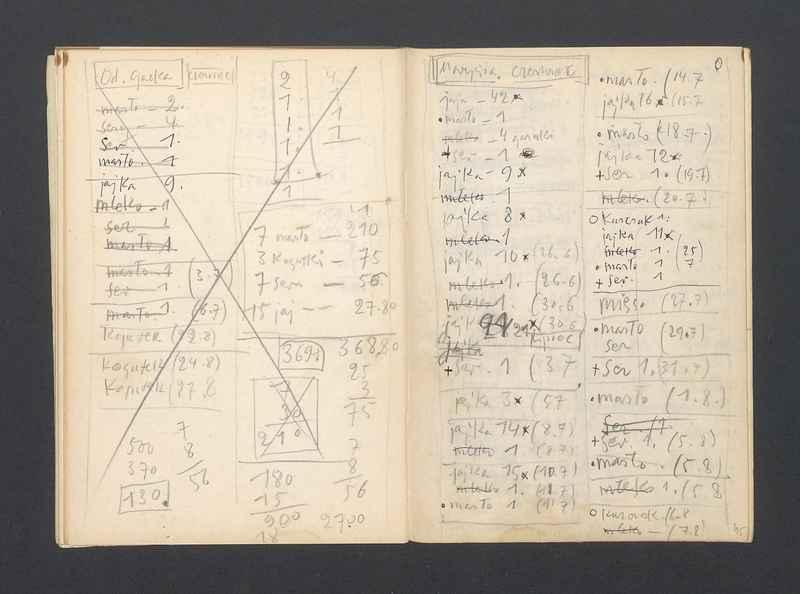 Od. Gacka czerwiec
masło - 2.
ser - 4.
ser 1.
masło. 1
jajka 9.
mleko - 1
ser 1
masło 1
masło - 1. (3.7)
ser 1.
masło 1. (6.7)
Kogutek (22.8)
Kogutek (24.8)
Kogutek (27.8
500
370
130
7
8
56
2
1.
1
1.
1.
1
4.
1
1
1
7 masło - 210
3 Kogutki - 75
7 serów - 56
15 jaj - 27.80
369 368,80
7
30
210
25
3
75
7
8
56
180
15
900 2700
18
Marysia. czerwiec
jaja - 42 x
• masło - 1
mleko - 4 garnki
+ ser - 1
jajka - 9 x
mleko. 1
jajka 8 x
mleko - 1
jajka 10 x (26.6)
mleko 1. (26.6)
mleko 1. (30.6
jajka 21 x (30.6
lipiec
+ ser. 1 (3.7
jajka 3 x (5.7
jajka 14 x (8.7)
mleko 1 (8.7)
jajka 15 x (11.7)
mleko 1. (11.7
• masło 1 (11.7)
0
• masło. (14.7
jajka 16 x (15.7
• masło (18.7.)
jajka 12 x
+ ser 1. (19.7)
mleko. (20.7.)
o Kurczak 1.
jajka 11 x
mleko 1. (25
• masło 1 7
+ ser. 1
mięso. (27.7)
• masło (29.7)
ser
+ ser 1. (31.7)
• masło (1.8.)
ser 1
+ ser. 1. (5.8)
• masło. (5.8)
mleko 1. (5.8
o Kurczak. (6.8
mleko - (7.8)